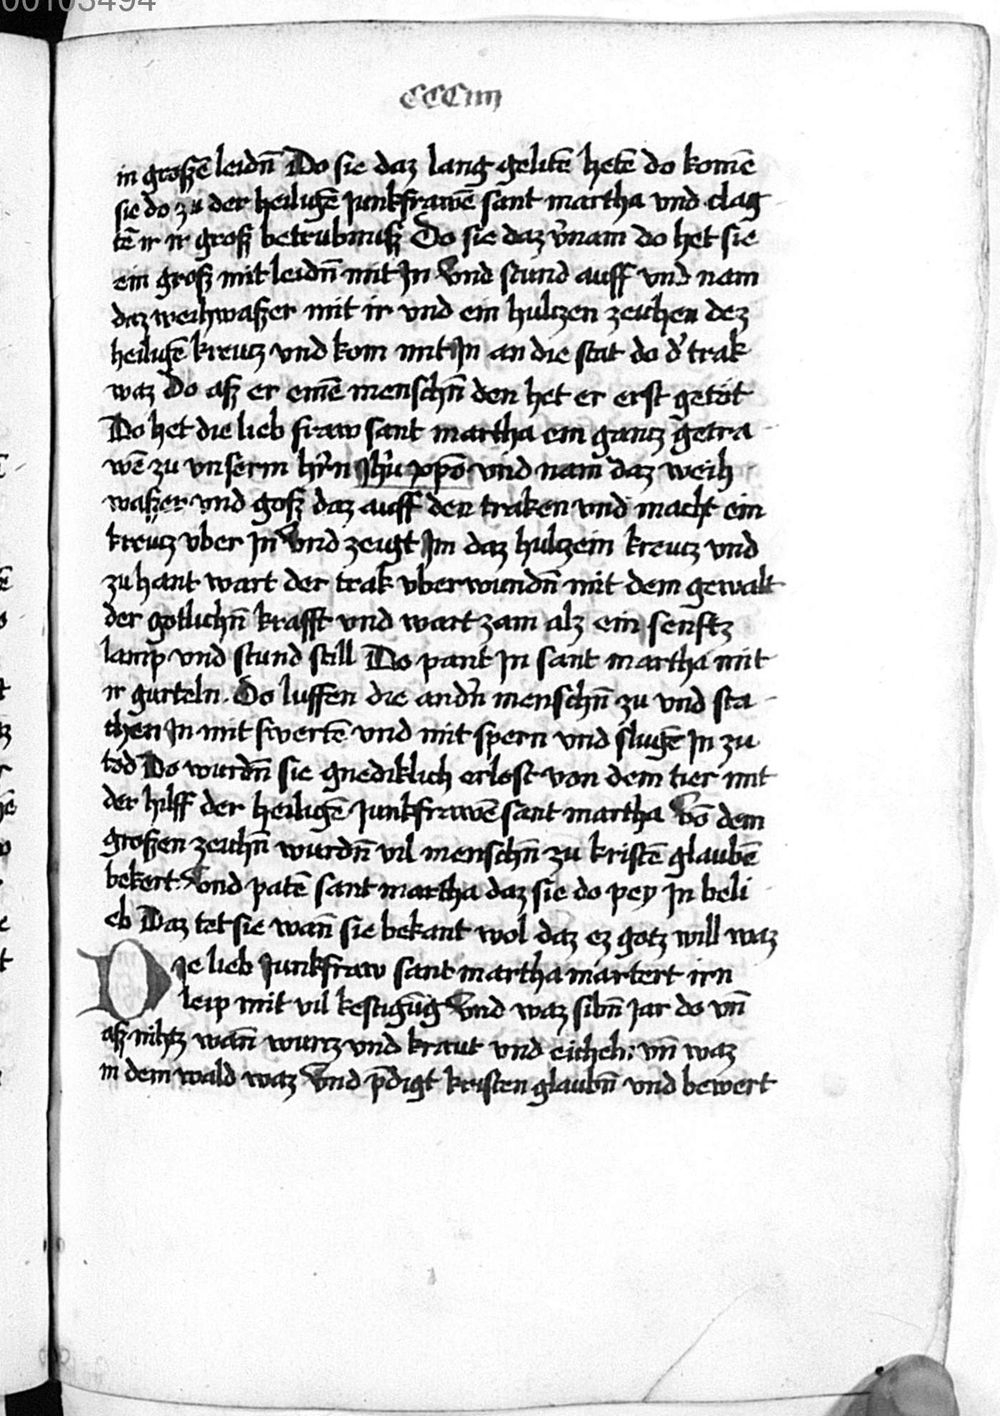 00103494
CCCiiij
in großē leidn̄ Do sie daz lang gelitē hetē do komē
sie do zu der heiligē junkfrawē sant martha vnd clag
tē ir ir groß betrubnuß Do sie daz v̓nam do het sie
ein groß mit leidn̄ mit In Vnd stund auff vnd nam
daz weihwaßer mit ir vnd ein hultzen zeichen dez
heiligē kreutz vnd kom mit In an die stat do d̓ trak
waz Do aß er einē menschn̄ den het er erst getöt
Do het die lieb fraw sant martha ein gantz getra
wē zu vnserm hr̄n Jhū xpō vnd nam daz weih
waßer vnd goß daz auff den traken vnd macht ein
kreutz vber In Vnd zeugt Im daz hultzein kreutz vnd
zu hant wart der trak vberwundn̄ mit dem gewalt
der gotlichn̄ krafft vnd wart zam alz ein senftz
lamp vnd stund still Do pant In sant martha mit
ir gurteln. Do luffen die and̓n menschn̄ zu vnd sta
chen In mit swertē vnd mit spern vnd slugē In zu
tod Do wurdn̄ sie gnediklich erlost von dem tier mit
der hilff der heiligē junkfrawē sant martha Vō dem
großen zeichn̄ wurdn̄ vil menschn̄ zu kristē glaubē
bekert. Vnd patē sant martha daz sie do pey In beli
eb Daz tet sie wan̄ sie bekant wol daz ez gotz will waz
Die lieb Junkfraw sant martha martert irn
leip mit vil kestigūg Vnd waz sibn̄ jar do vn̄
aß nihtz wan̄ wurtz vnd kraut vnd eicheln vn̄ waz
in dem wald waz Vnd p̄digt kristen glaubn̄ vnd bewert